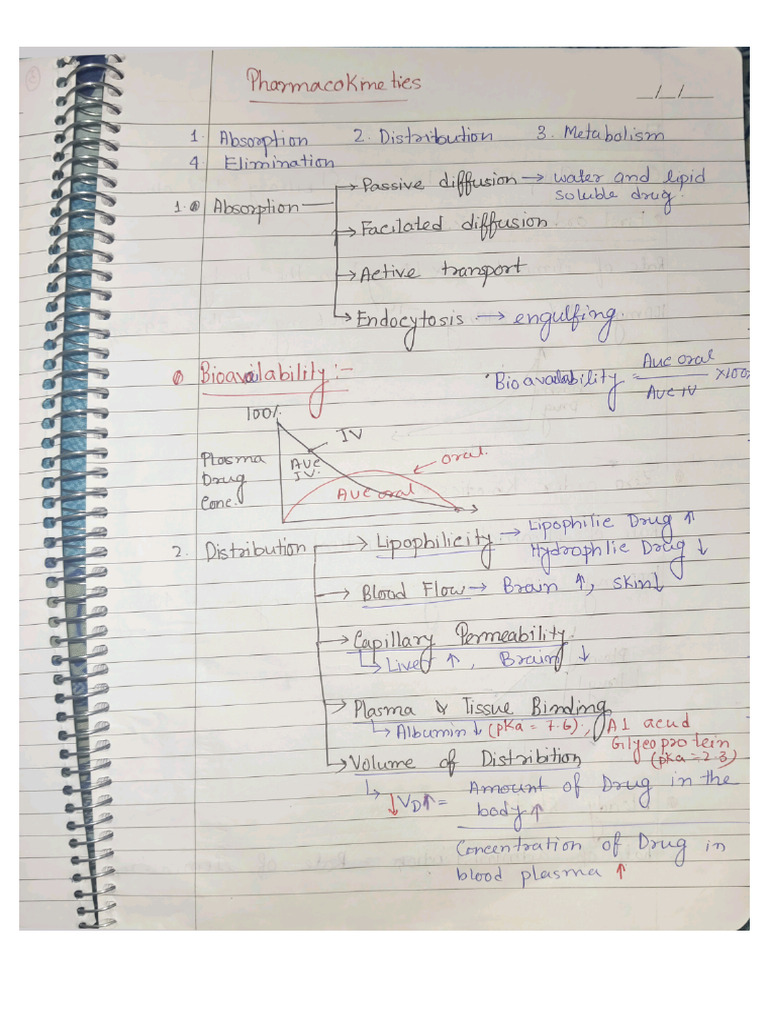 Pharmacokinetics
__/__/____
1. Absorption 2. Distribution 3. Metabolism
4 Elimination
1. Absorption → Passive diffusion → water and lipid
soluble drug.
→ Facilated diffusion
→ Active transport
→ Endocytosis → engulfing.
Bioavailability :-
Bioavailability = Auc oral / Auc IV ×100%
100%
IV
Plasma
Drug
Conc.
AUC
IV.
oral.
AUC oral
2. Distribution → Lipophilicity → Lipophilic Drug ↑
Hydrophlic Drug ↓
→ Blood Flow → Brain ↑, skin↓
→ Capillary Permeability.
↳ Liver ↑, Brain ↓
→ Plasma & Tissue Binding
↳ Albumin↓ (pKa = 7.6), A1 acud
Glyeoprotein
(pKa = 2.3)
→ Volume of Distribition
↳ ↓VD↑ = Amount of Drug in the
body ↑
Concentration of Drug in
blood plasma ↑